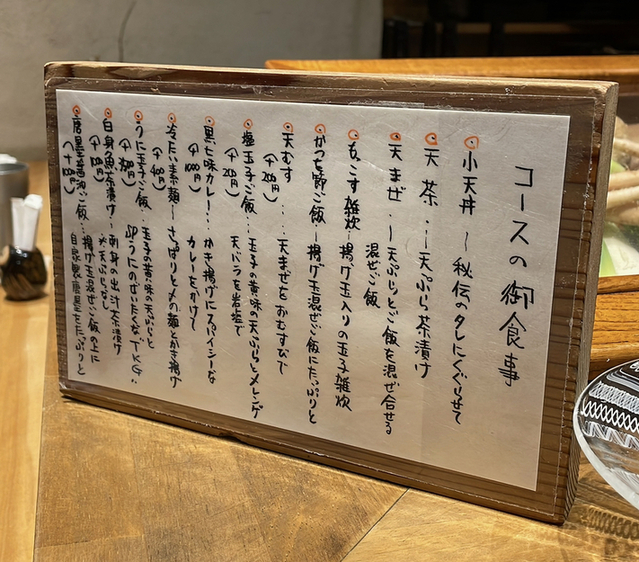 コースの御食事
小天丼 〜 秘伝のタレにくぐらせて
天茶 ‥〜天ぷら茶漬け
天まぜ 〜天ぷらとご飯を混ぜ合せる
混ぜご飯
もっこす雑炊〜揚げ玉入りの玉子雑炊
かつを節ご飯〜揚げ玉混ぜご飯にたっぷりと
天むす ‥‥ 天まぜをおむすびで
(+200円)
塩玉子ご飯‥ 玉子の黄味の天ぷらとメレンゲ
(+200円) 天バラを岩塩で
黒七味カレー‥ かき揚げにスパイシーな
カレーをかけて
冷たい素麺〜さっぱりと〆の麺とかき揚げ
うに玉子ご飯‥ 玉子の黄味の天ぷらと
うにのぜいたくなTKG‥
白身魚茶漬け〜刺身の出汁茶漬け
※天ぷらなし
唐墨醤油ご飯‥揚げ玉混ぜご飯の上に
自家製唐墨をたっぷりと